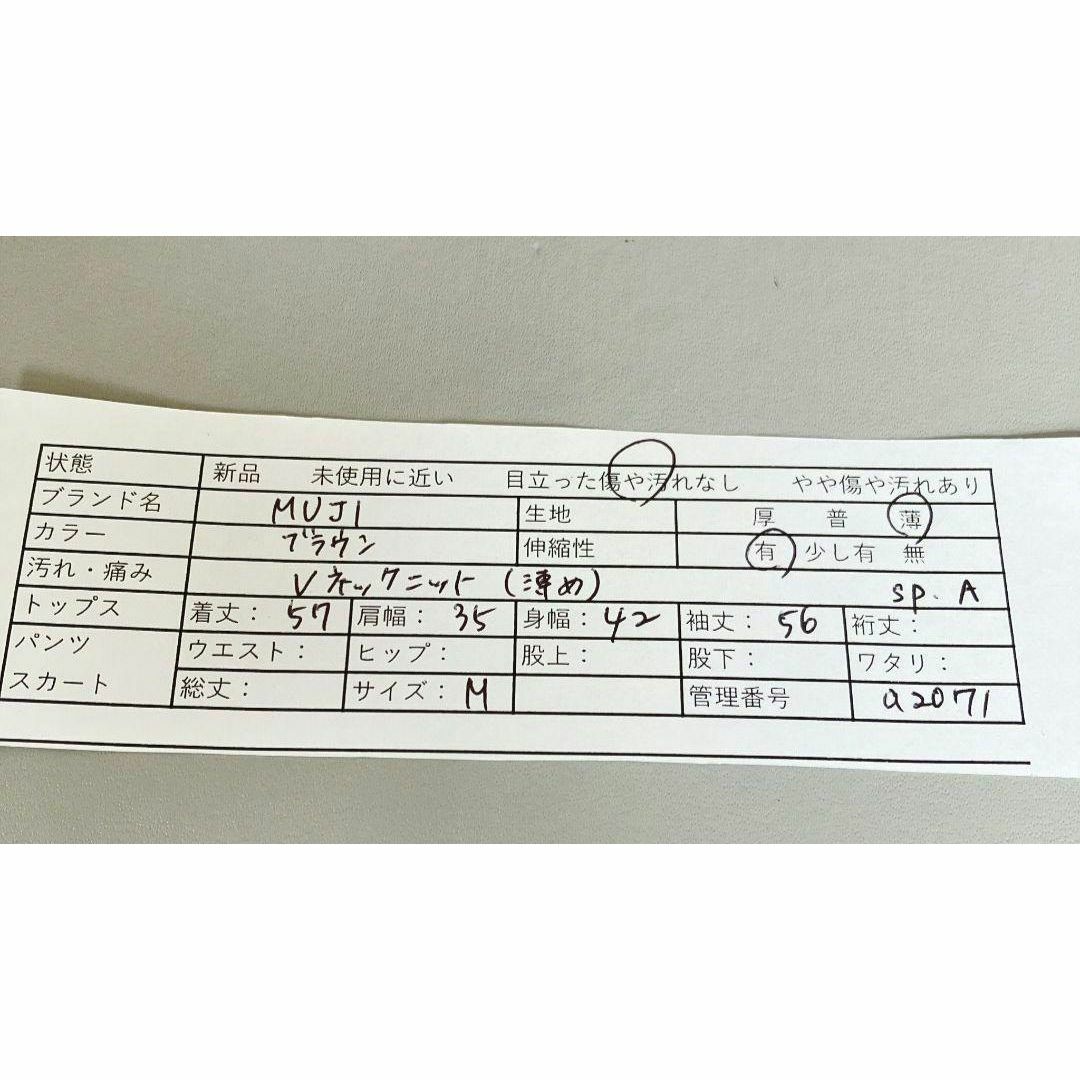 状態 新品 未使用に近い 目立った傷や汚れなし やや傷や汚れあり
ブランド名 MUJI 生地 厚 普 薄
カラー ブラウン 伸縮性 有 少し有 無
汚れ・痛み Vネックニット(薄め) sp. A
トップス 着丈: 57 肩幅: 35 身幅: 42 袖丈: 56 裄丈:
パンツ ウエスト: ヒップ: 股上: 股下: ワタリ:
スカート 総丈: サイズ: M 管理番号 a2071